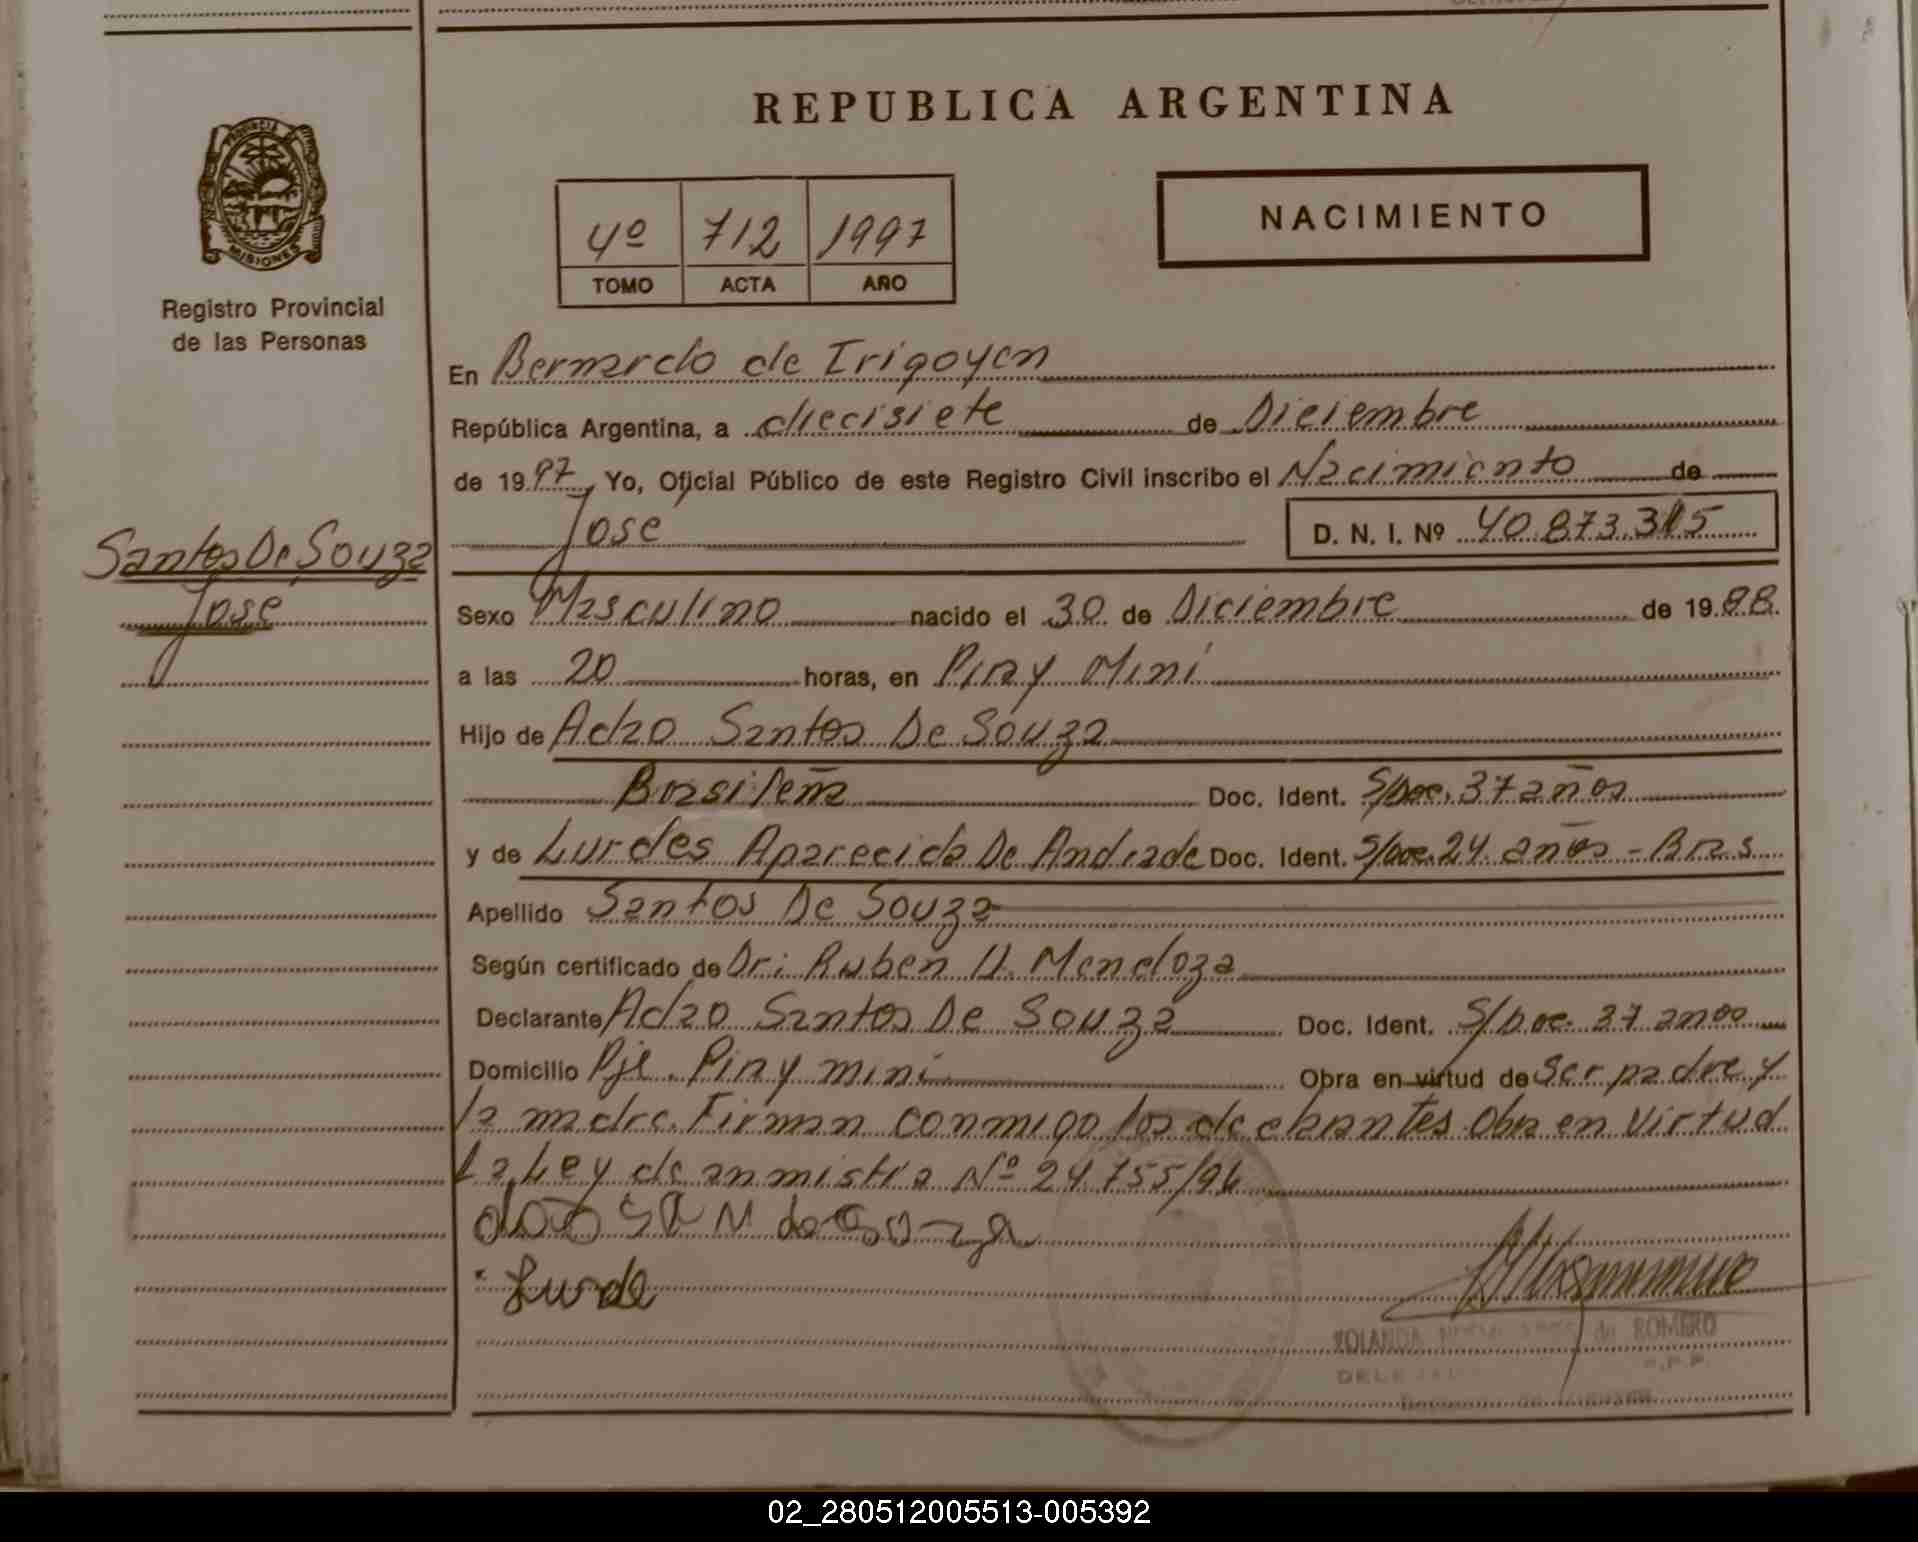 REPUBLICA ARGENTINA
PROVINCIA DE MISIONES
Registro Provincial
de las Personas
4º 712 1997
TOMO ACTA AÑO
NACIMIENTO
En Bernardo de Irigoyen
República Argentina, a diecisiete de Diciembre
de 1997 Yo, Oficial Público de este Registro Civil inscribo el Nacimiento de
José D. N. I. Nº 40.873.315
Santos De Souza
José
Sexo Masculino nacido el 30 de Diciembre de 1988
a las 20 horas, en Piray Mini
Hijo de Adao Santos De Souza
Brasileña Doc. Ident. S/Doc. 37 años
y de Lurdes Aparecida De Andrade Doc. Ident. S/Doc. 24 años - Bras
Apellido Santos De Souza
Según certificado de Dr: Ruben H. Mendoza
Declarante Adao Santos De Souza Doc. Ident. S/Doc. 37 anos
Domicilio Pje. Piray mini Obra en virtud de ser padre y
la madre. Firman conmigo los declarantes. Obra en virtud
la Ley de anmistia Nº 24.755/96
Lurde
YOLANDA de ROMERO
02_280512005513-005392